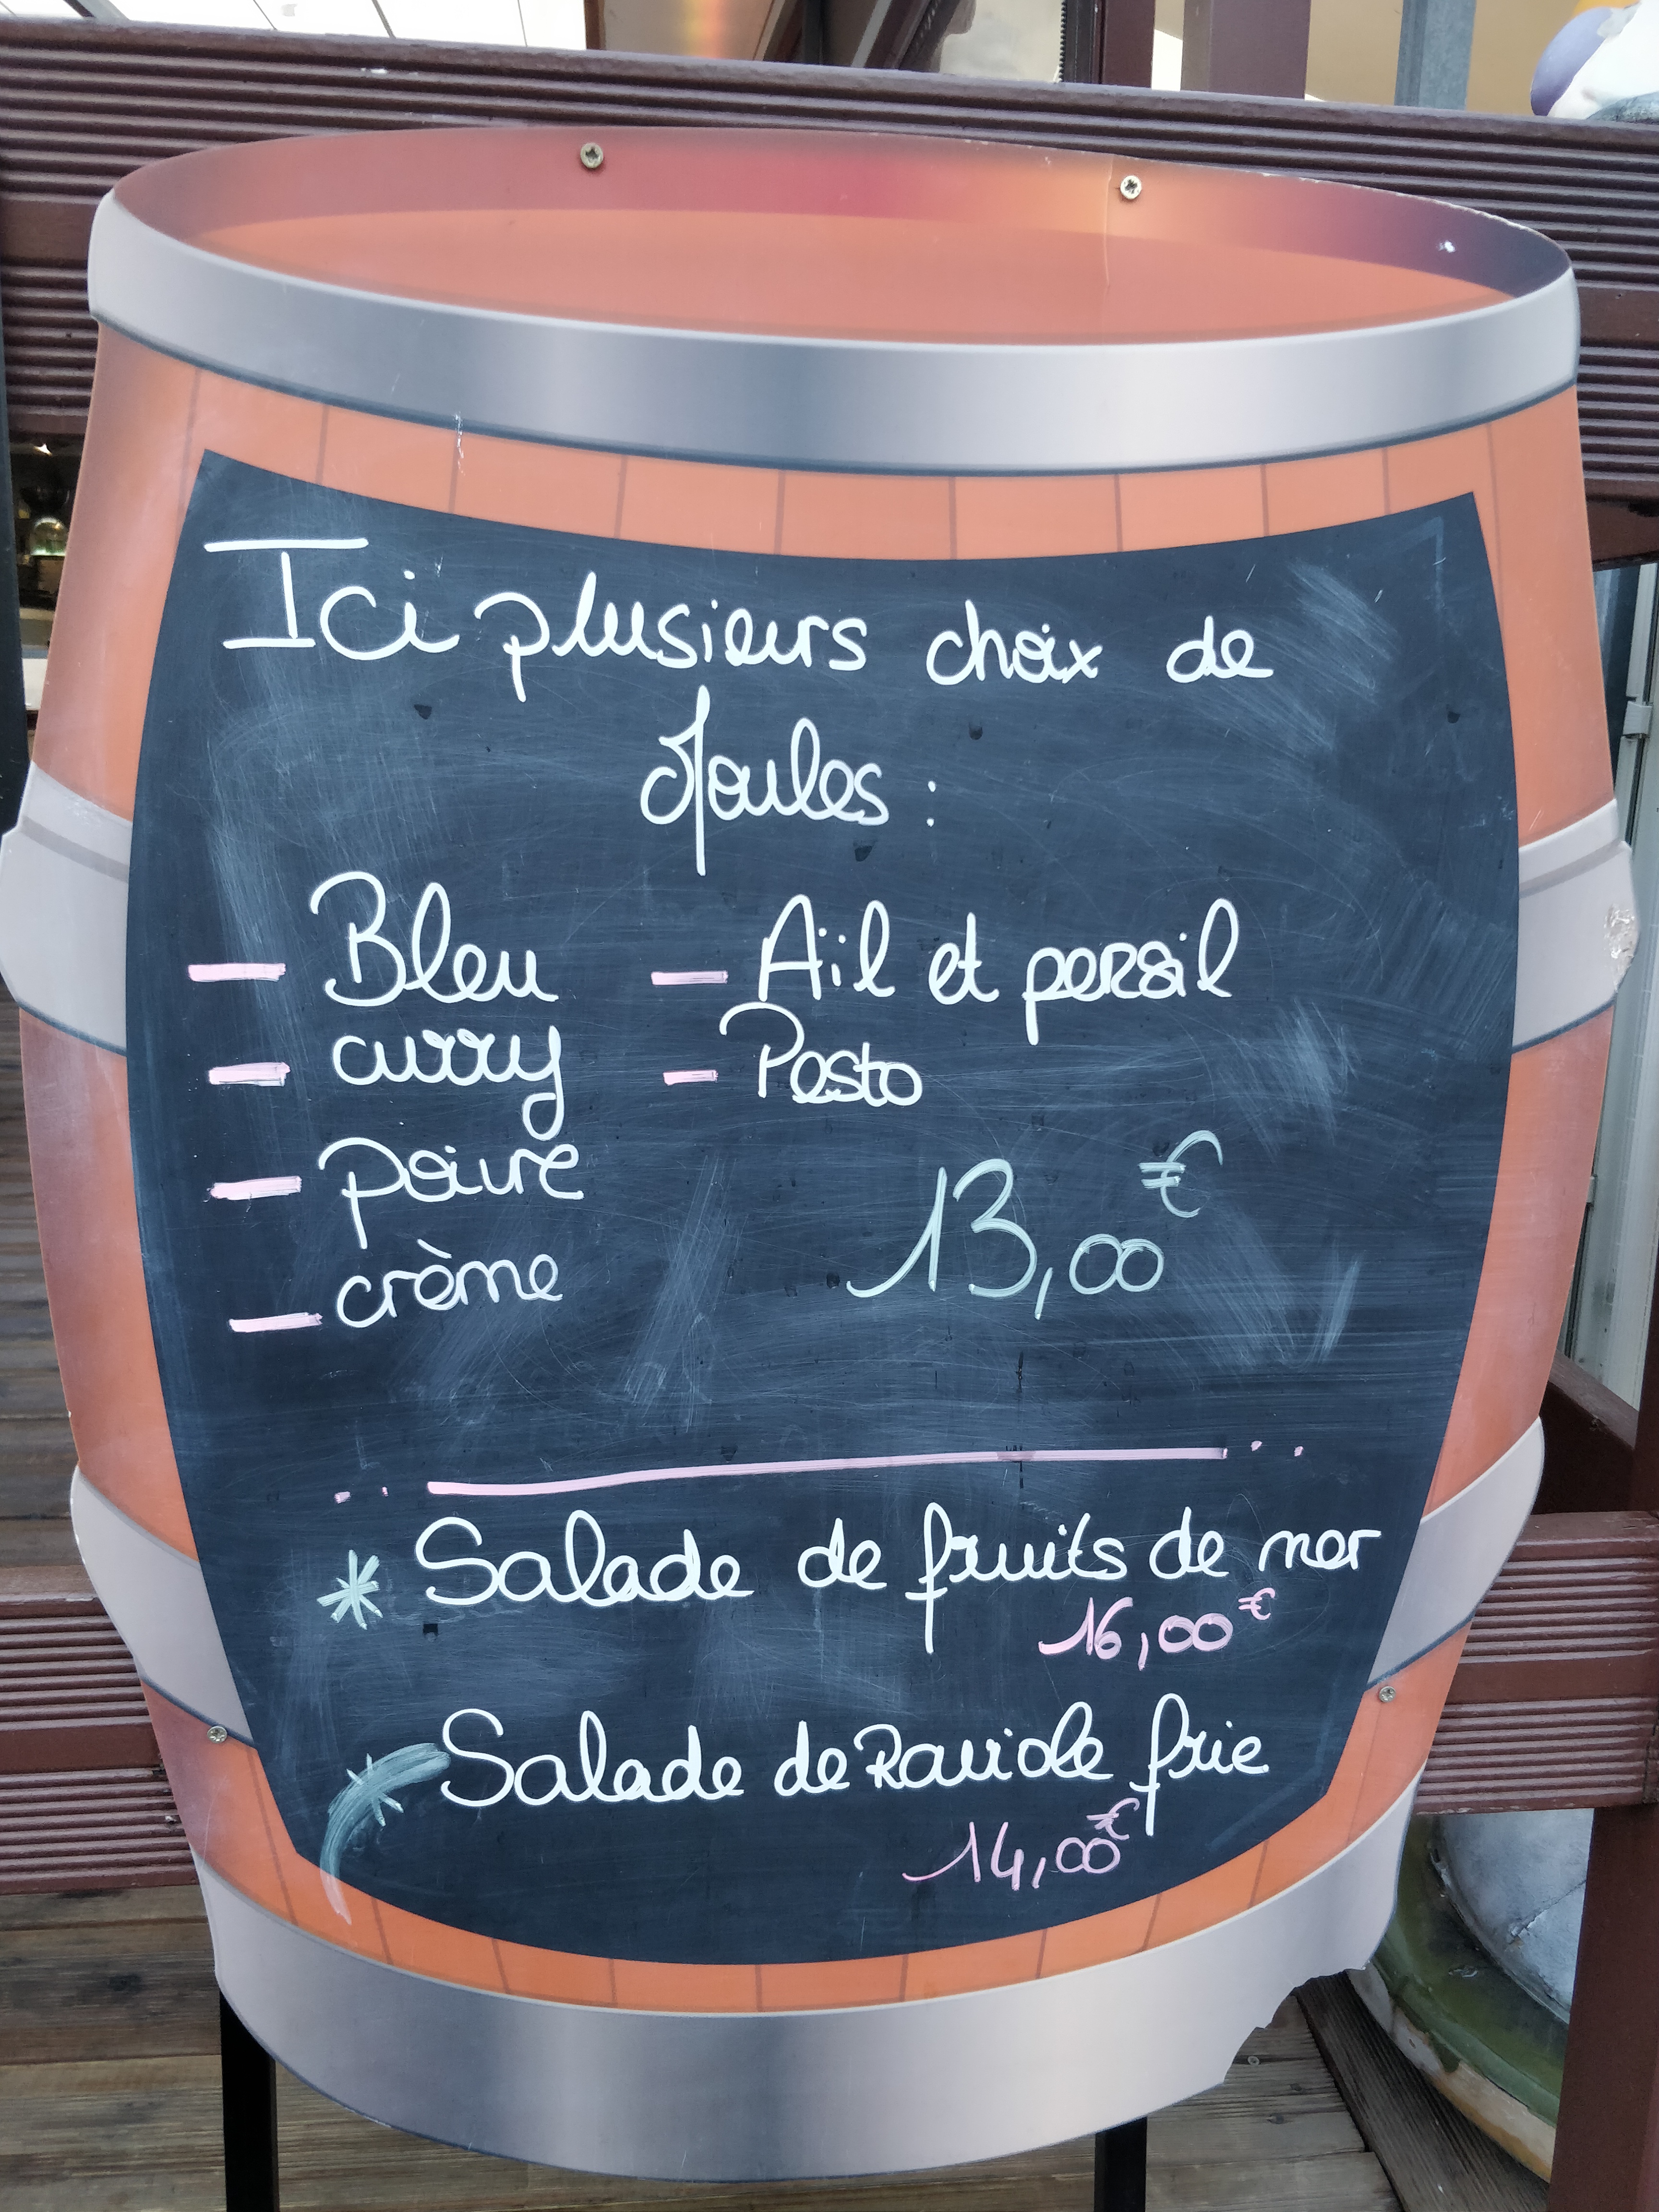 Ici plusieurs choix de
Moules :
- Bleu - Ail et persil
- curry - Pesto
- poivre
- crème
13,00€
* Salade de fruits de mer
16,00€
* Salade de Raviole frie
14,00€